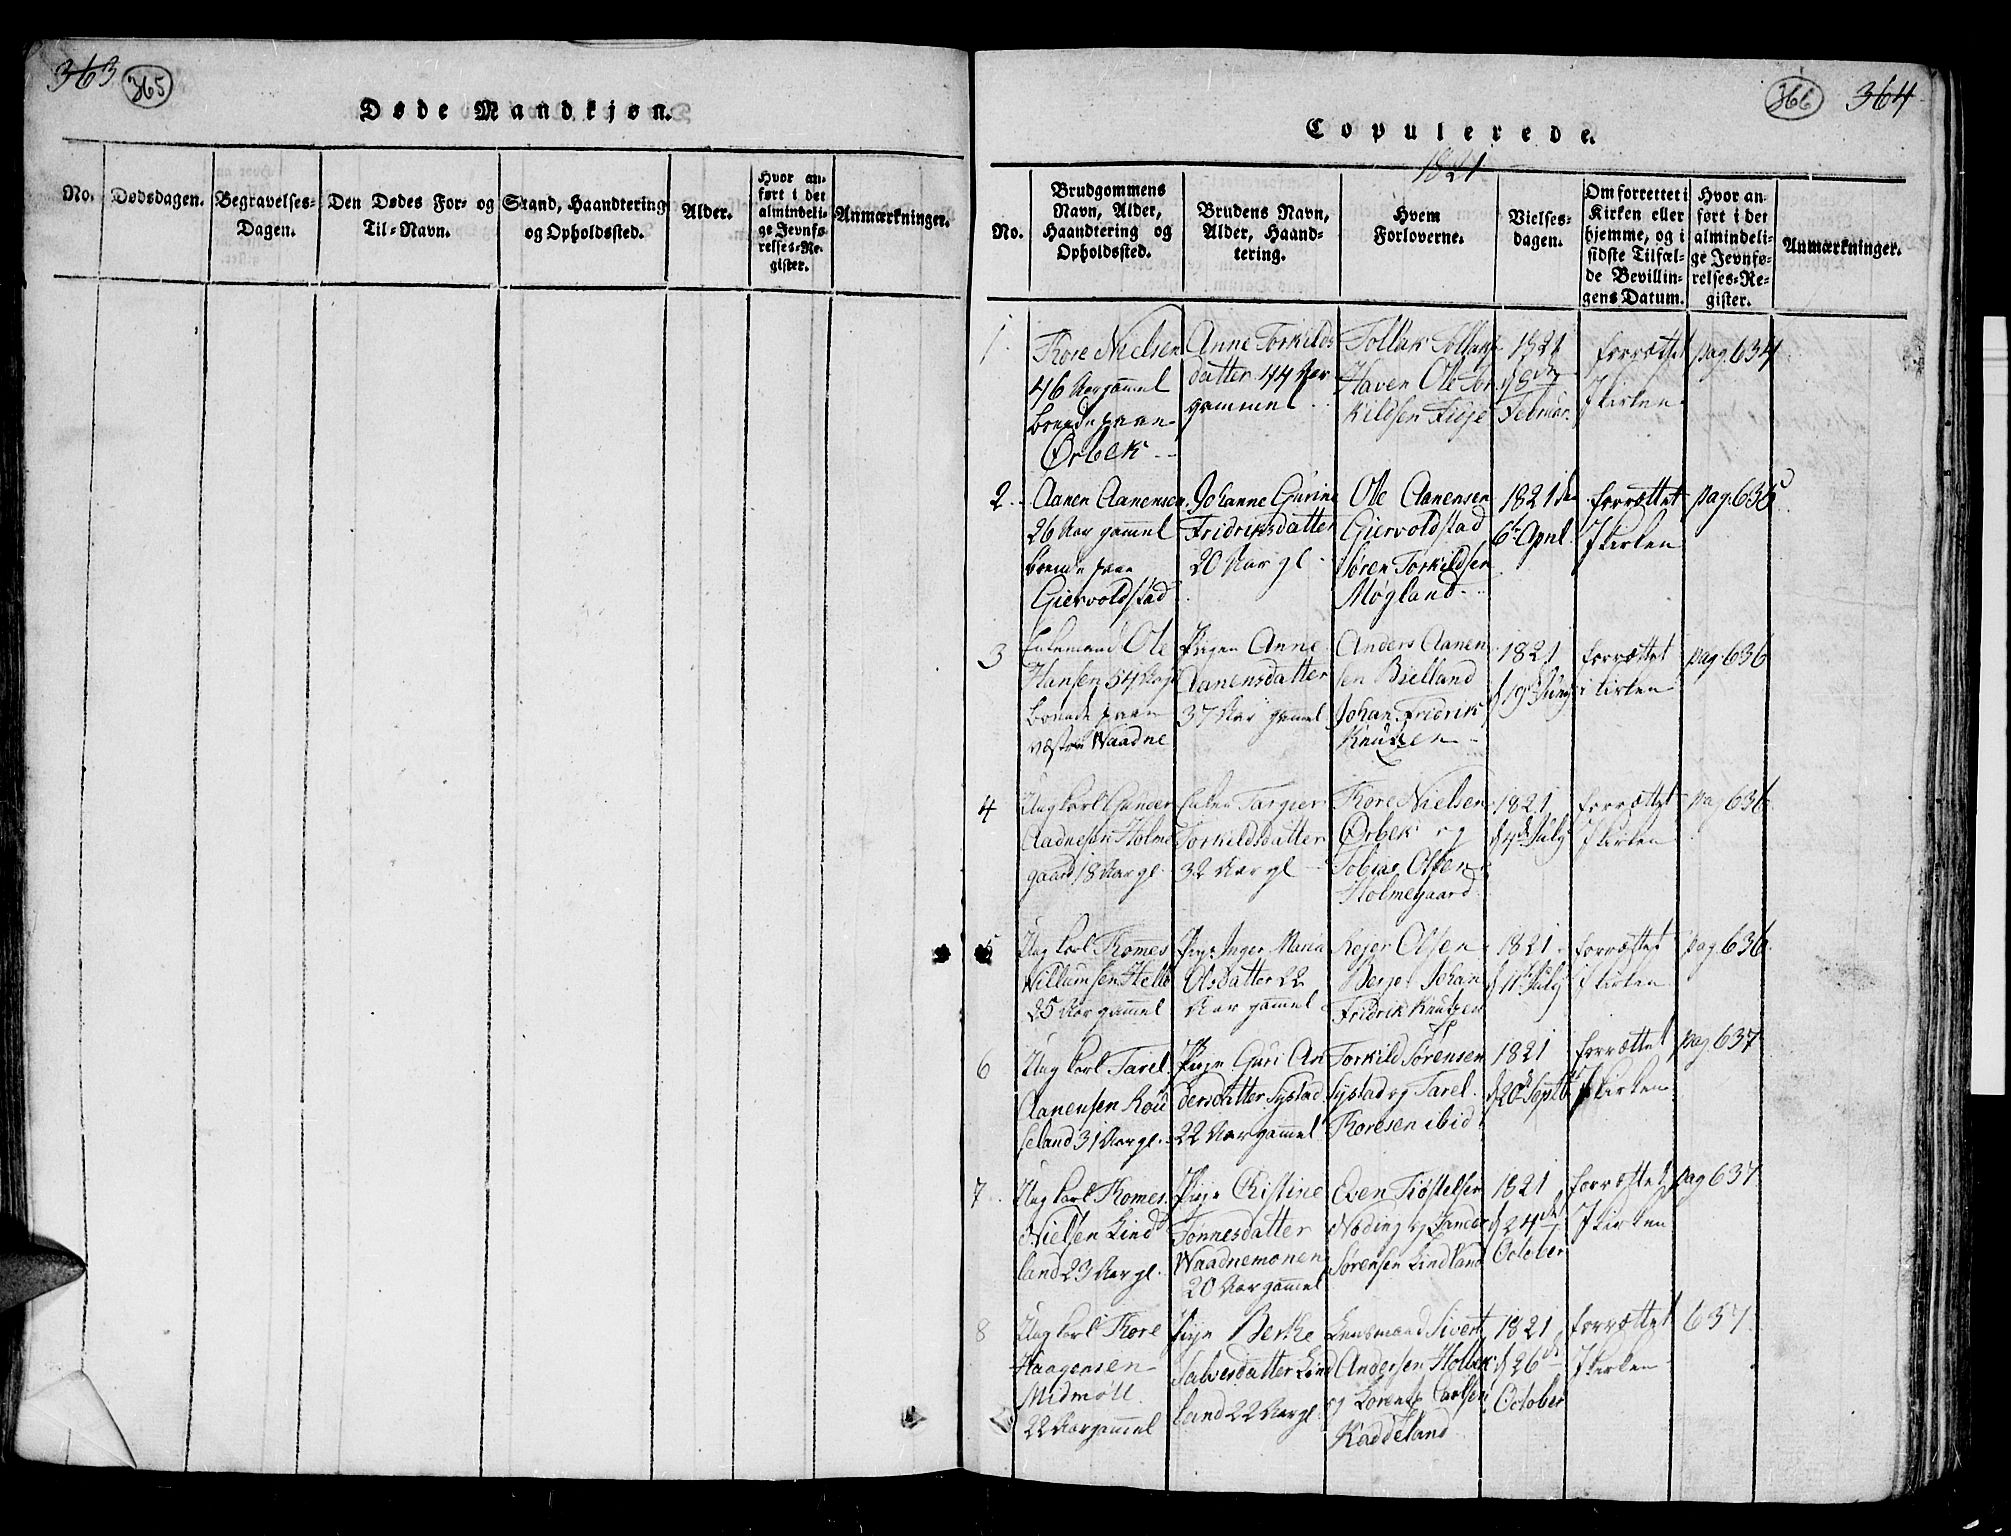 363 365
Døde Mandkjøn.
No.
Dødsdagen.
Begravelses-
Dagen.
Den Dødes For- og
Til-Navn.
Stand, Haandtering
og Opholdssted.
Alder.
Hvor an-
ført i det
almindeli-
ge Jevnfø-
relses-Re-
gister.
Anmærkninger.
366 364
Copulerede.
1821
No.
Brudgommens
Navn, Alder,
Haandtering og
Opholdssted.
Brudens Navn,
Alder, Haand-
tering.
Hvem
Forloverne.
Vielses-
dagen.
Om forrettet i
Kirken eller
hjemme, og i
sidste Tilfæl-
de Bevillin-
gens Datum.
Hvor an-
ført i det
almindeli-
ge Jevnfø-
relses-Re-
gister.
Anmærkninger.
1.
Tore Nielsen
46 Aar gammel
boende paa
Ørbek
Anne Torkilds
datter 44 Aar
gammel
Tollak
Haven Ole Tor
kildsen Tisje
1821
Februar.
forrættet
I kirken
pag. 634
2.
Aanen Aanensen
26 Aar gammel
boende paa
Giervoldstad
Johanne Gurine
Fridriksdatter
20 Aar gl
Ole Aanensen
Giervoldstad
Søren Torkildsen
Møgland
1821 den
6te April.
forrættet
I kirken
pag. 636
3
Enkemand Ole
Hansen 54 Aar
boende paa
væstre Waadne
Pigen Anne
Aanensdatter
37 Aar gammel
Anders Aanen
sen Bielland
Johan Fridrik
Knutzen
1821
d 19 Juny
forrættet
i kirken
pag 636
4
Ung karl Gunder
Aadnesøn Holme
gaard 18 Aar gl.
Enken Targier
Torkildsdatter
32 Aar gl
Tore Nielsen
Ørbek og
Tobias Olsen
Holmegaard
1821
d 4de July
forrættet
I kirken
pag 636
5
Ung karl Tomes
Willumsen Helle
25 Aar gammel
Pige Inger Maria
Olsdatter 22
Aar gammel
Rejer Olsen
Johan
Fridrik Knutzen
1821
d 11te July
forrættet
i kirken
pag 636
6
Ung karl Tarel
Aanensen Rou
seland 31 Aar gl.
Pige Guri An
dersdatter Systad
22 Aar gammel
Torkild Sørensen
Systad og Tarel
Toresen ibid
1821
d 20de Septb
forrættet
I kirken
pag 637
7
Ung karl Tomes
Nielsen Lind
land 23 Aar gl.
Pige Cristine
Tonnesdatter
Waadnemonen
20 Aar gammel
Even Tiøstelsen
Nøding og Gunder
Sørensen Lindland
1821
d 24de
October
forrættet
I kirken
pag 637
8
Ung karl Tore
Haagensen
Midmøll
22 Aar gammel
Pige Berthe
Salvesdatter Lind
land 22 Aar gl.
Lensmand Sivert
Andersen Holbek
og Lorents Carlsen
Raddeland
1821
d 26de
October
forrættet
I kirken
637